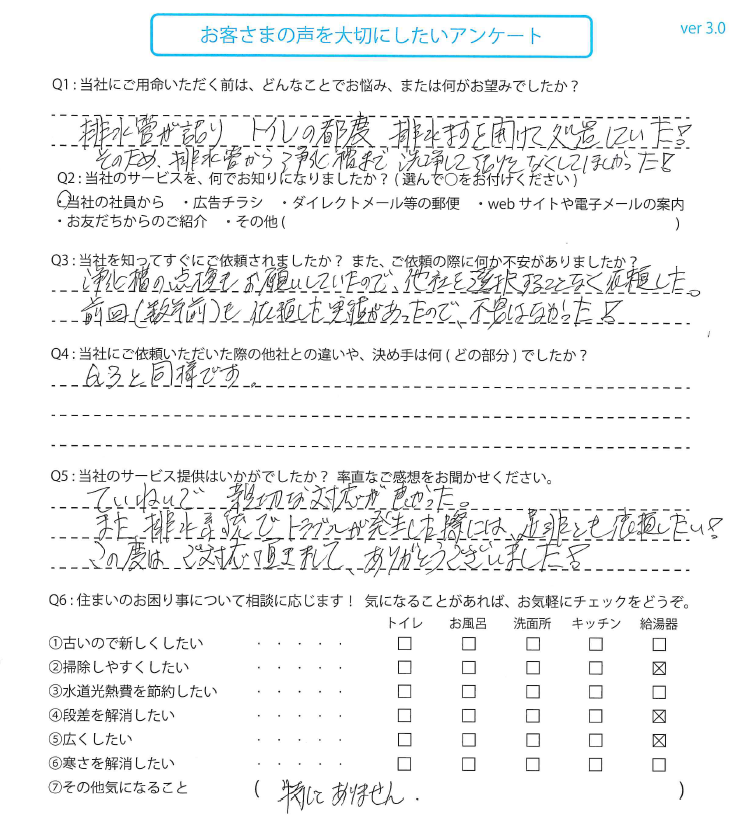 お客さまの声を大切にしたいアンケート
ver 3.0
Q1：当社にご用命いただく前は、どんなことでお悩み、または何がお望みでしたか？
排水管が詰り トイレの都度 排水ますを開けて処置していた！
そのため、排水管から浄化槽まで 洗浄して詰りをなくしてほしかった！
Q2：当社のサービスを、何でお知りになりましたか？( 選んで○をお付けください )
・当社の社員から ・広告チラシ ・ダイレクトメール等の郵便 ・web サイトや電子メールの案内
・お友だちからのご紹介 ・その他 ( )
Q3：当社を知ってすぐにご依頼されましたか？ また、ご依頼の際に何か不安がありましたか？
浄化槽の点検をお願いしていたので、他社を選択することなく依頼した。
前回(数年前)も 依頼した実績があったので、不安はなかった！
Q4：当社にご依頼いただいた際の他社との違いや、決め手は何 ( どの部分 ) でしたか？
Q3と同様です。
Q5：当社のサービス提供はいかがでしたか？ 率直なご感想をお聞かせください。
ていねいで 親切な対応が良かった。
また、排水系統でトラブルが発生した際には、是非とも依頼したい！
この度は ご対応頂きまして、ありがとうございました！
Q6：住まいのお困り事について相談に応じます！ 気になることがあれば、お気軽にチェックをどうぞ。
トイレ お風呂 洗面所 キッチン 給湯器
①古いので新しくしたい ・・・・・ □ □ □ □ □
②掃除しやすくしたい ・・・・・ □ □ □ □ ☒
③水道光熱費を節約したい ・・・・・ □ □ □ □ □
④段差を解消したい ・・・・・ □ □ □ □ ☒
⑤広くしたい ・・・・・ □ □ □ □ ☒
⑥寒さを解消したい ・・・・・ □ □ □ □ □
⑦その他気になること ( 特にありません. )